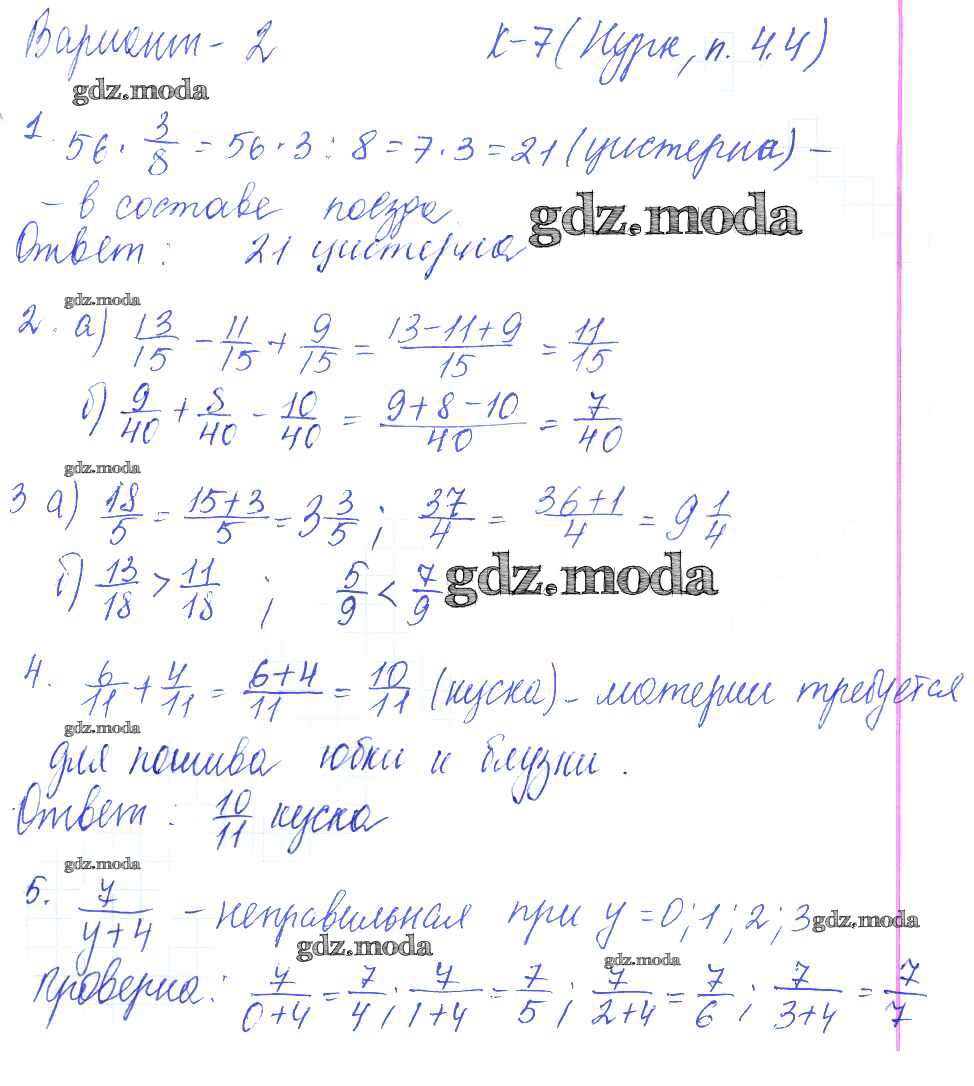 Вариант - 2 К-7 (Нурк, п. 4.4)
gdz.moda
1. 56 · 3/8 = 56 · 3 : 8 = 7 · 3 = 21 (цистерна) -
- в составе поезда
gdz.moda
Ответ: 21 цистерна
gdz.moda
2. а) 13/15 - 11/15 + 9/15 = (13-11+9)/15 = 11/15
б) 9/40 + 8/40 - 10/40 = (9+8-10)/40 = 7/40
gdz.moda
3 а) 18/5 = (15+3)/5 = 3 3/5 ; 37/4 = (36+1)/4 = 9 1/4
б) 13/18 > 11/18 ; 5/9 < 7/9
gdz.moda
4. 6/11 + 4/11 = (6+4)/11 = 10/11 (куска) - материи требуется
gdz.moda
для пошива юбки и блузки.
Ответ: 10/11 куска
gdz.moda
5. 7/(y+4) - неправильная при y = 0; 1; 2; 3
gdz.moda
gdz.moda
gdz.moda
проверка: 7/(0+4) = 7/4; 7/(1+4) = 7/5; 7/(2+4) = 7/6; 7/(3+4) = 7/7